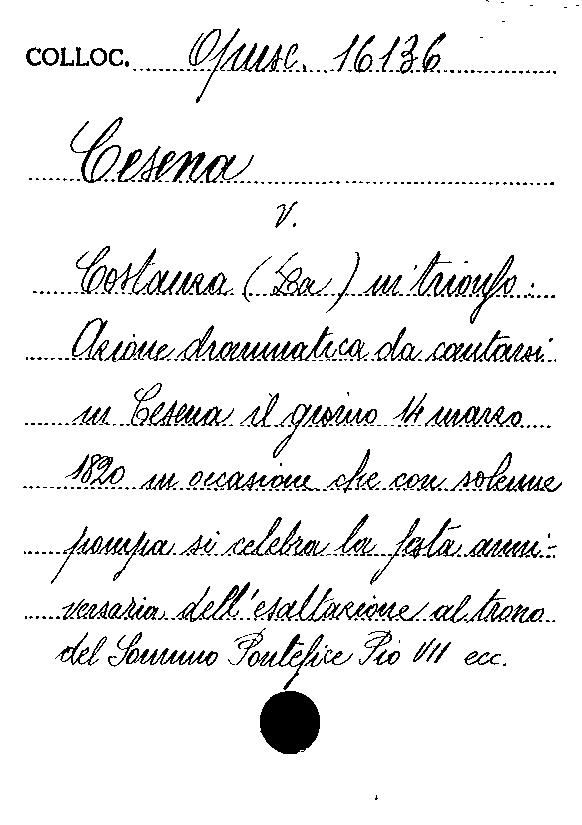 COLLOC. Opusc. 16136
Cesena
v.
Costanza (La) in trionfo:
Azione drammatica da cantarsi
in Cesena il giorno 14 marzo
1820 in occasione che con solenne
pompa si celebra la festa anni-
versaria dell'esaltazione al trono
del Sommo Pontefice Pio VII ecc.